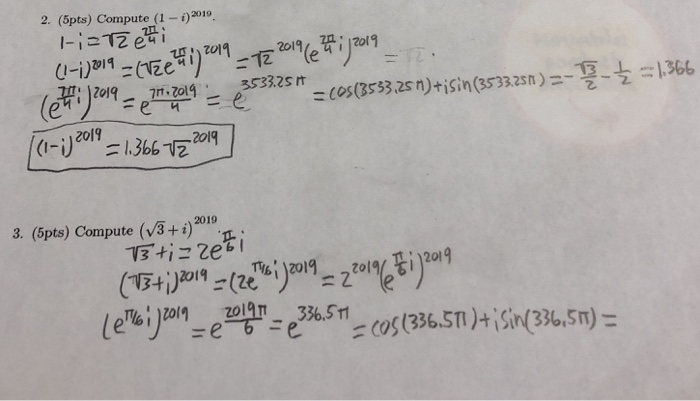 2. (5pts) Compute (1 − i)^2019.
1-i = √2 e^(7π/4 i)
(1-i)^2019 = (√2 e^(7π/4 i))^2019 = √2^2019 (e^(7π/4 i))^2019 = √2 .
(e^(7π/4 i))^2019 = e^(7π·2019/4) = e^(3533.25π) = cos(3533.25π)+isin(3533.25π) = -√3/2 - 1/2 = 1.366
(1-i)^2019 = 1.366 √2^2019
3. (5pts) Compute (√3 + i)^2019
√3+i = 2e^(π/6 i)
(√3+i)^2019 = (2e^(π/6 i))^2019 = 2^2019 (e^(π/6 i))^2019
(e^(π/6 i))^2019 = e^(2019π/6) = e^(336.5π) = cos(336.5π)+isin(336.5π) =